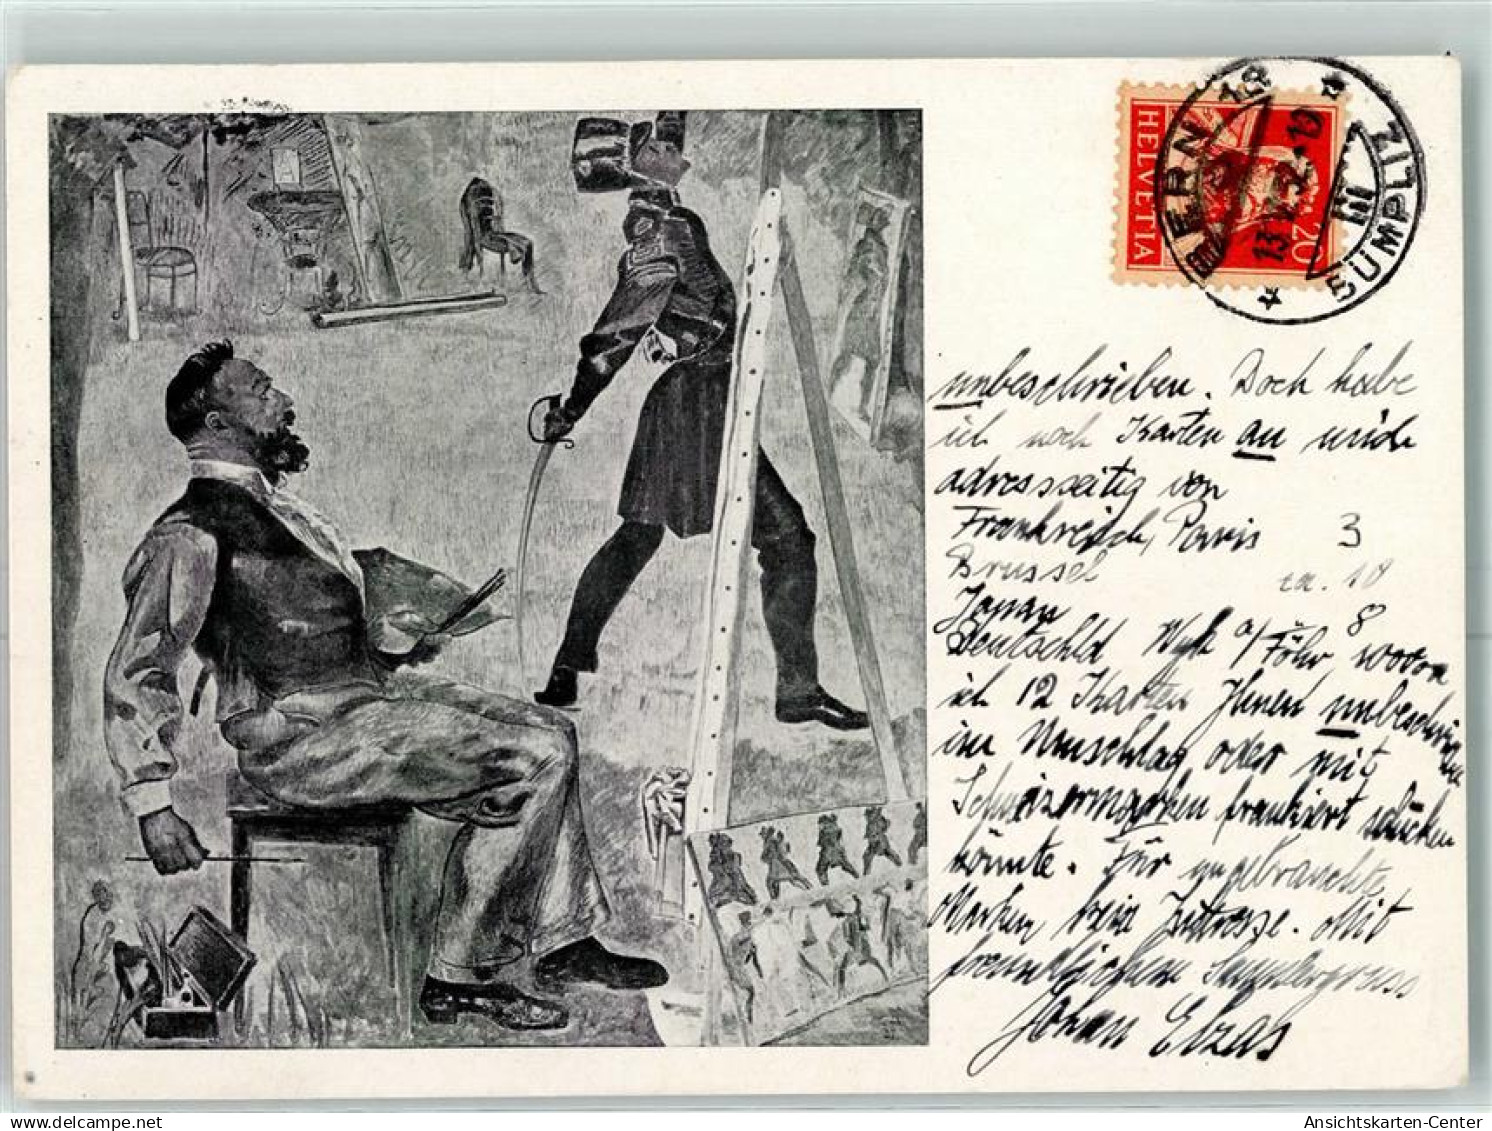 HELVETIA
20
BERN 18
BÜMPLIZ
13.V.32-10
III
unbeschrieben. Doch habe
ich noch Karten an mich
adressseitig von
Frankreich, Paris 3
Brussel ca. 10
Japan 8
Deutschld Wyk a/Föhr, wovon
ich 12 Karten Ihnen unbeschrieben
im Umschlag oder mit
Schweizermarken frankiert schicken
könnte. Für ungebrauchte
Marken kein Intresse. Mit
freundlichem Sammlergruss
Johan Elzas
delcampe.net
Ansichtskarten-Center